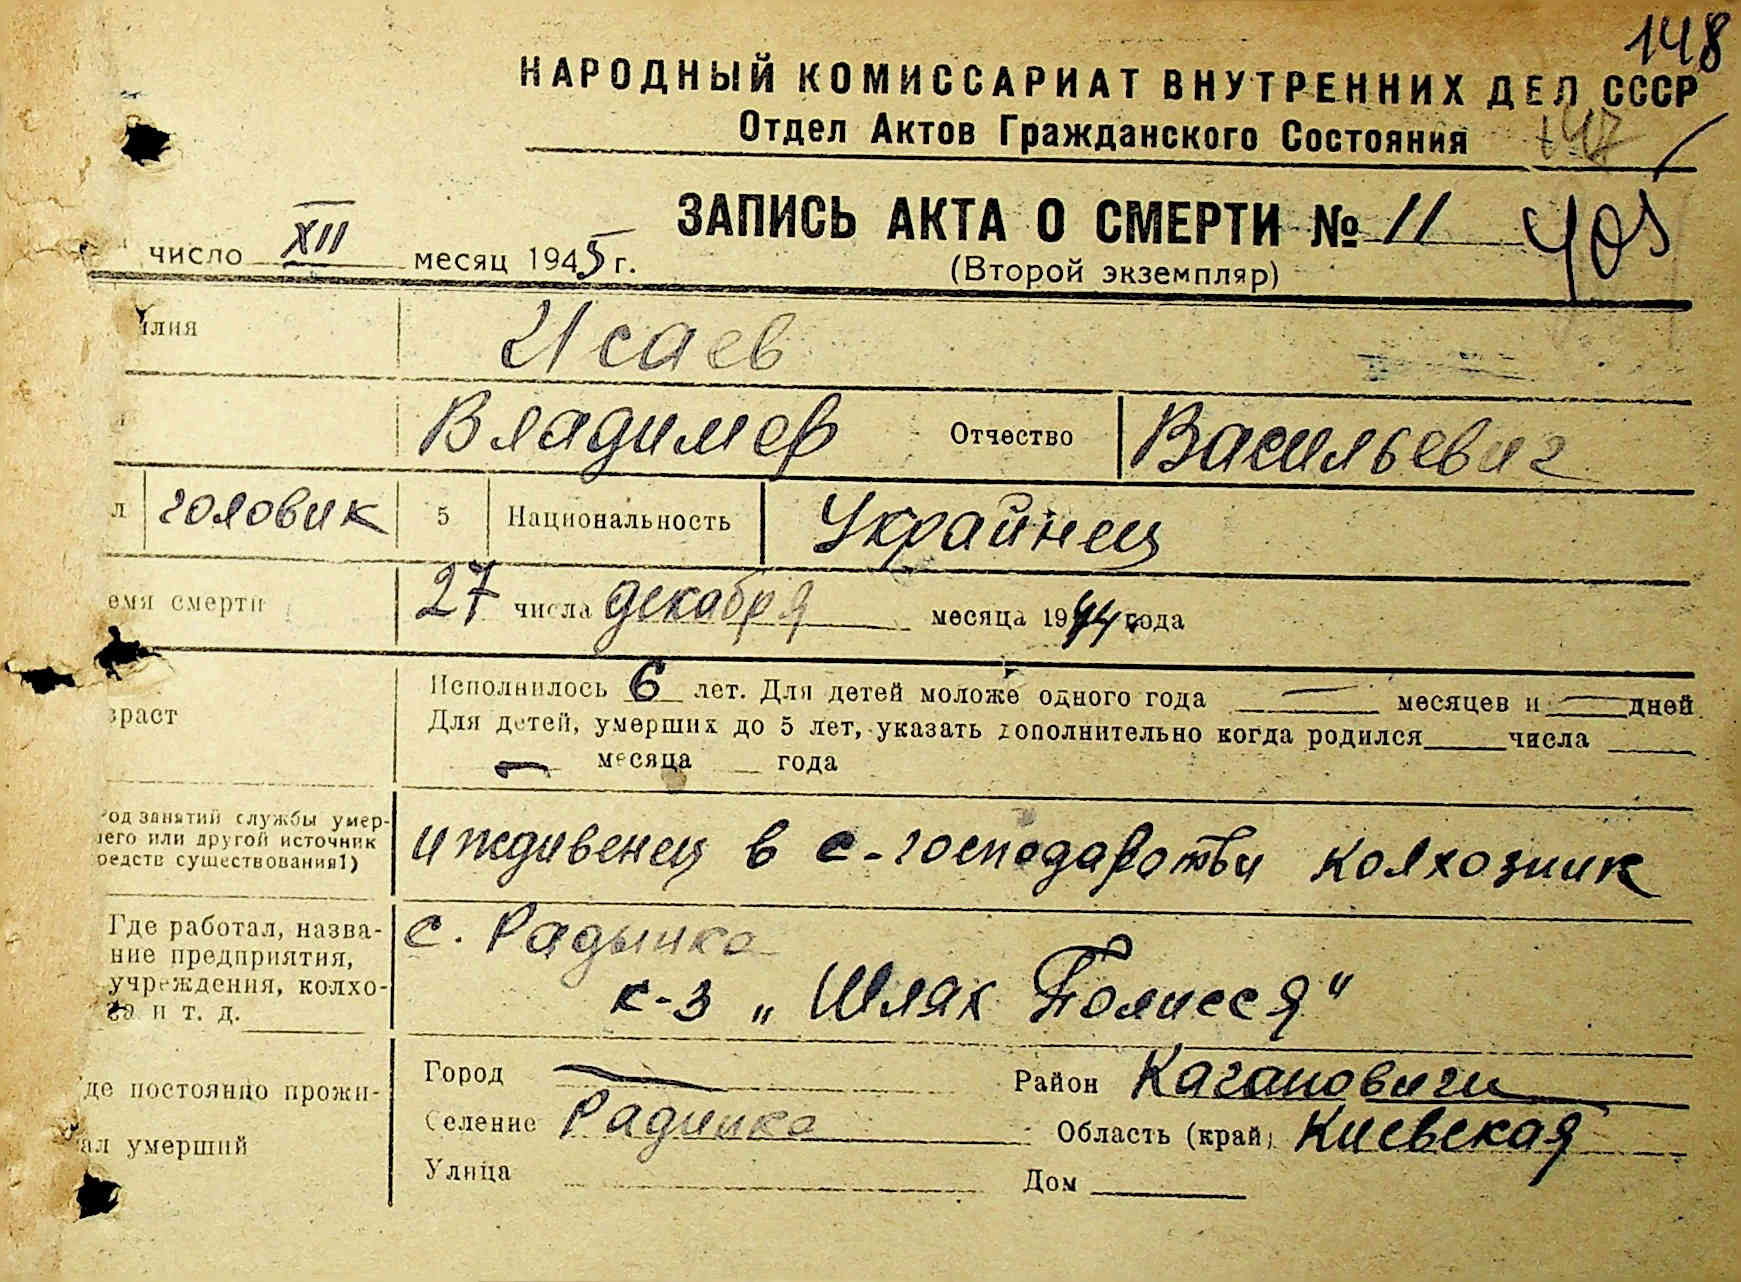 148
НАРОДНЫЙ КОМИССАРИАТ ВНУТРЕННИХ ДЕЛ СССР
Отдел Актов Гражданского Состояния 147
ЗАПИСЬ АКТА О СМЕРТИ № 11
число XII месяц 1945 г.
(Второй экземпляр)
илия Исаев
Владимер Отчество Васильевич
л головик 5 Национальность Украйнец
емя смерти 27 числа декабря месяца 1944 года
зраст Исполнилось 6 лет. Для детей моложе одного года — месяцев и — дней
Для детей, умерших до 5 лет, указать дополнительно когда родился числа
— месяца года
од занятий службы умер-
шего или другой источник
редств существования1)
иждивенец в с-господарстви колхозник
Где работал, назва-
ние предприятия,
учреждения, колхо-
за и т. д.
с. Радынка
к-з „Шлях Полисся"
де постоянно прожи-
ал умерший
Город — Район Кагановичи
Селение Радинка Область (край) Киевская
Улица Дом